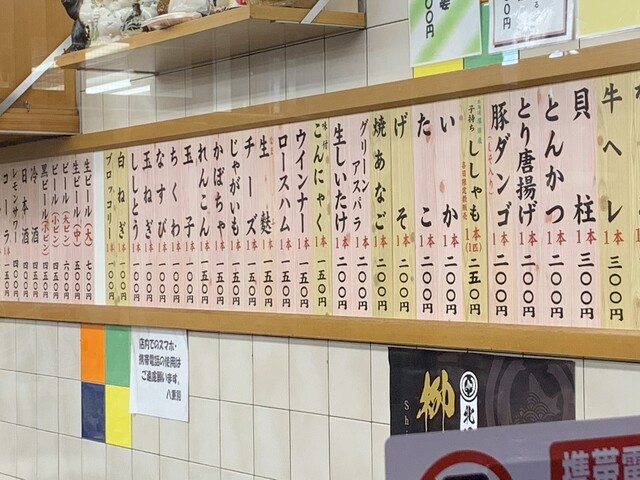 牛ヘレ 1本 三〇〇円
貝柱 1本 三〇〇円
とんかつ 1本 二〇〇円
とり唐揚げ 1本 二〇〇円
豚ダンゴ (しそ入り) 1本 二〇〇円
子持ち ししゃも 1本(1匹) 二五〇円
いか 1本 二〇〇円
たこ 1本 二〇〇円
げそ 1本 二〇〇円
焼あなご 1本 二〇〇円
グリーンアスパラ 1本 二〇〇円
生しいたけ 1本 二〇〇円
味付 こんにゃく 1本 一五〇円
ウインナー 1本 一五〇円
ロースハム 1本 一五〇円
生麩 1本 一五〇円
チーズ 1本 一五〇円
じゃがいも 1本 一五〇円
かぼちゃ 1本 一五〇円
れんこん 1本 一五〇円
玉子 1本 一〇〇円
ちくわ 1本 一〇〇円
なすび 1本 一〇〇円
玉ねぎ 1本 一〇〇円
ししとう 1本 一〇〇円
白ねぎ 1本 一〇〇円
ブロッコリー 1本 一〇〇円
生ビール(大) 七〇〇円
生ビール(中) 五五〇円
ビール(大ビン) 六〇〇円
ビール(中ビン)
黒ビール(小ビン)
冷酒
日本酒
レモンサワー
コーラ
店内でのスマホ・
携帯電話の使用は
ご遠慮願います。
八重勝
柳
北
携帯電